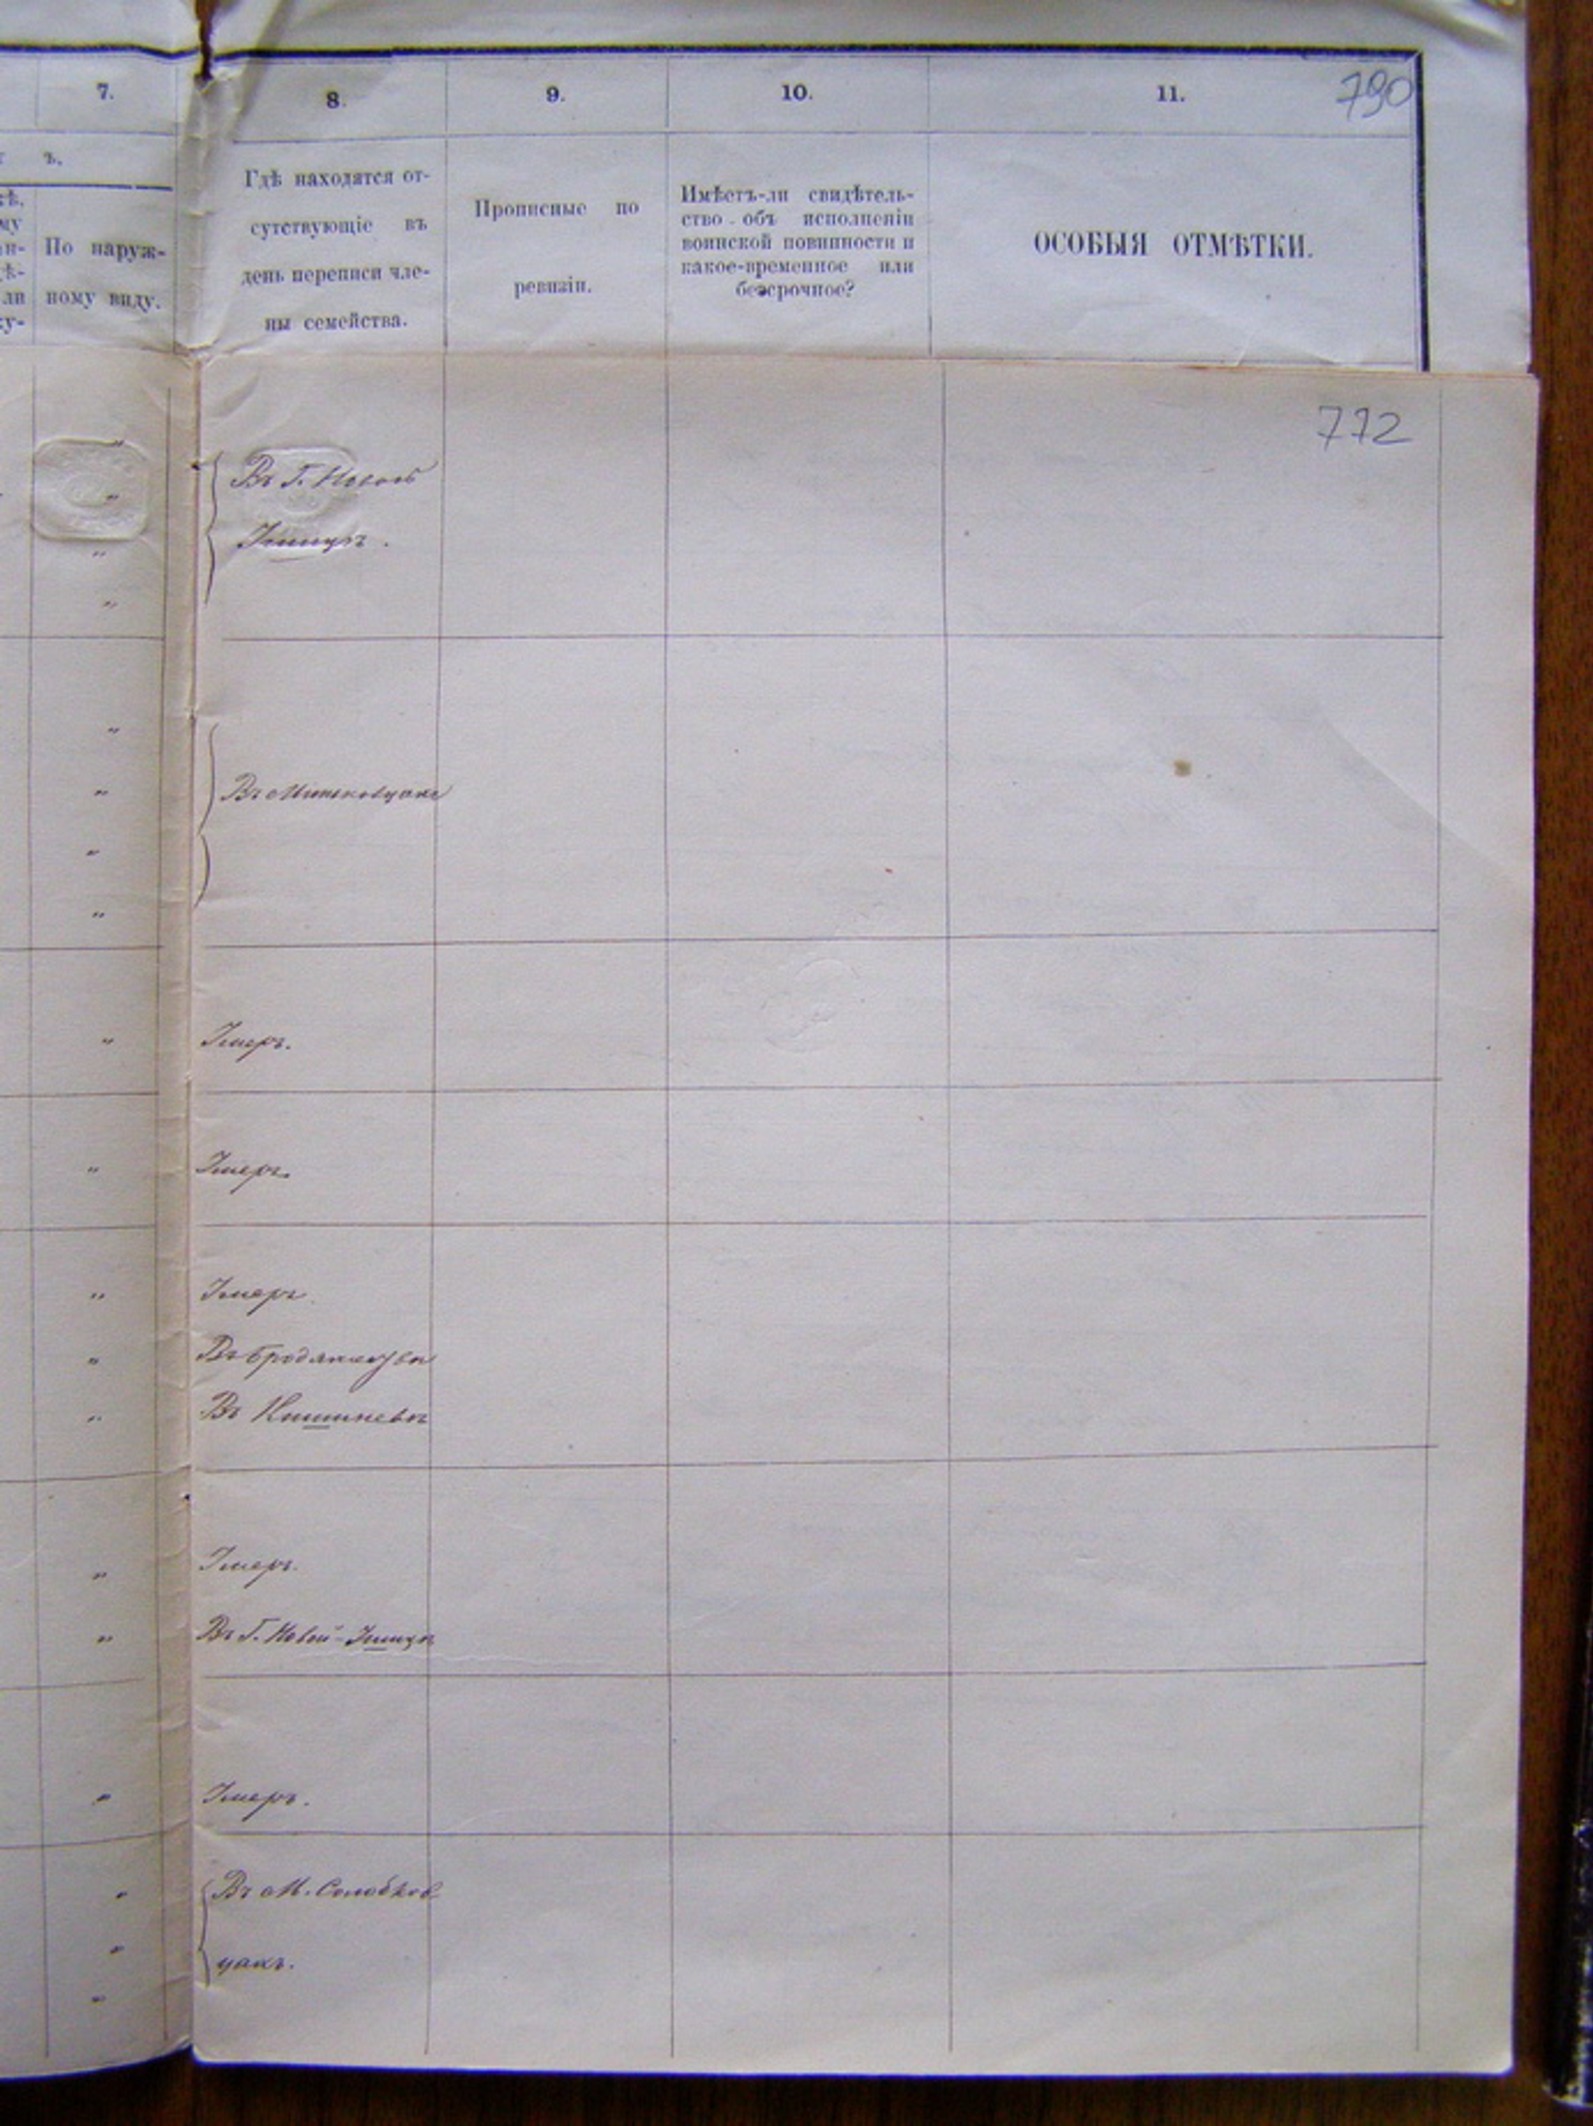 7.
8.
9.
10.
11.
790
ъ.
По наруж-
ному виду.
Гдѣ находятся от-
сутствующіе въ
день переписи чле-
ны семейства.
Прописные по
ревизіи.
Имѣетъ-ли свидѣтель-
ство объ исполненіи
воинской повинности и
какое-временное или
безсрочное?
ОСОБЫЯ ОТМѢТКИ.
772
Въ Г. Новой
Ушицѣ.
Умеръ.
Умеръ.
Умеръ.
Въ
Въ Кишиневѣ
Умеръ.
Въ Г. Новой-Ушицѣ
Умеръ.
Въ М. Солобков
цахъ.